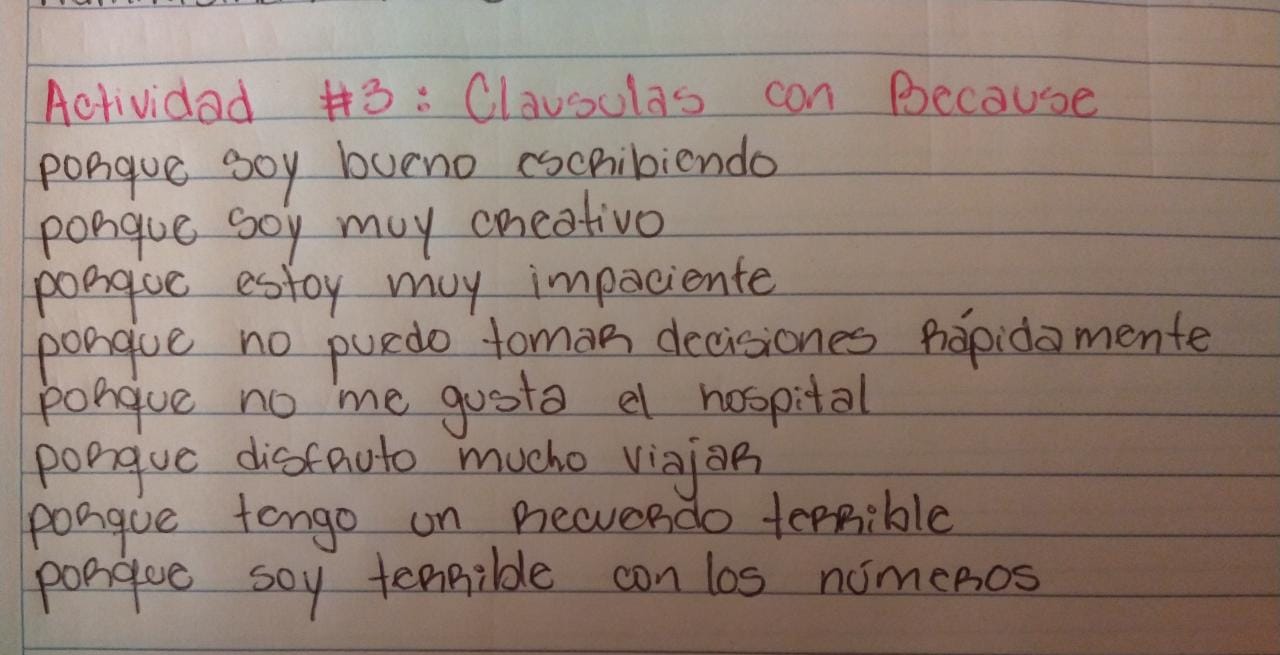 Actividad #3: Clausulas con Because
porque soy bueno escribiendo
porque soy muy creativo
porque estoy muy impaciente
porque no puedo tomar decisiones rápidamente
porque no me gusta el hospital
porque disfruto mucho viajar
porque tengo un recuerdo terrible
porque soy terrible con los números